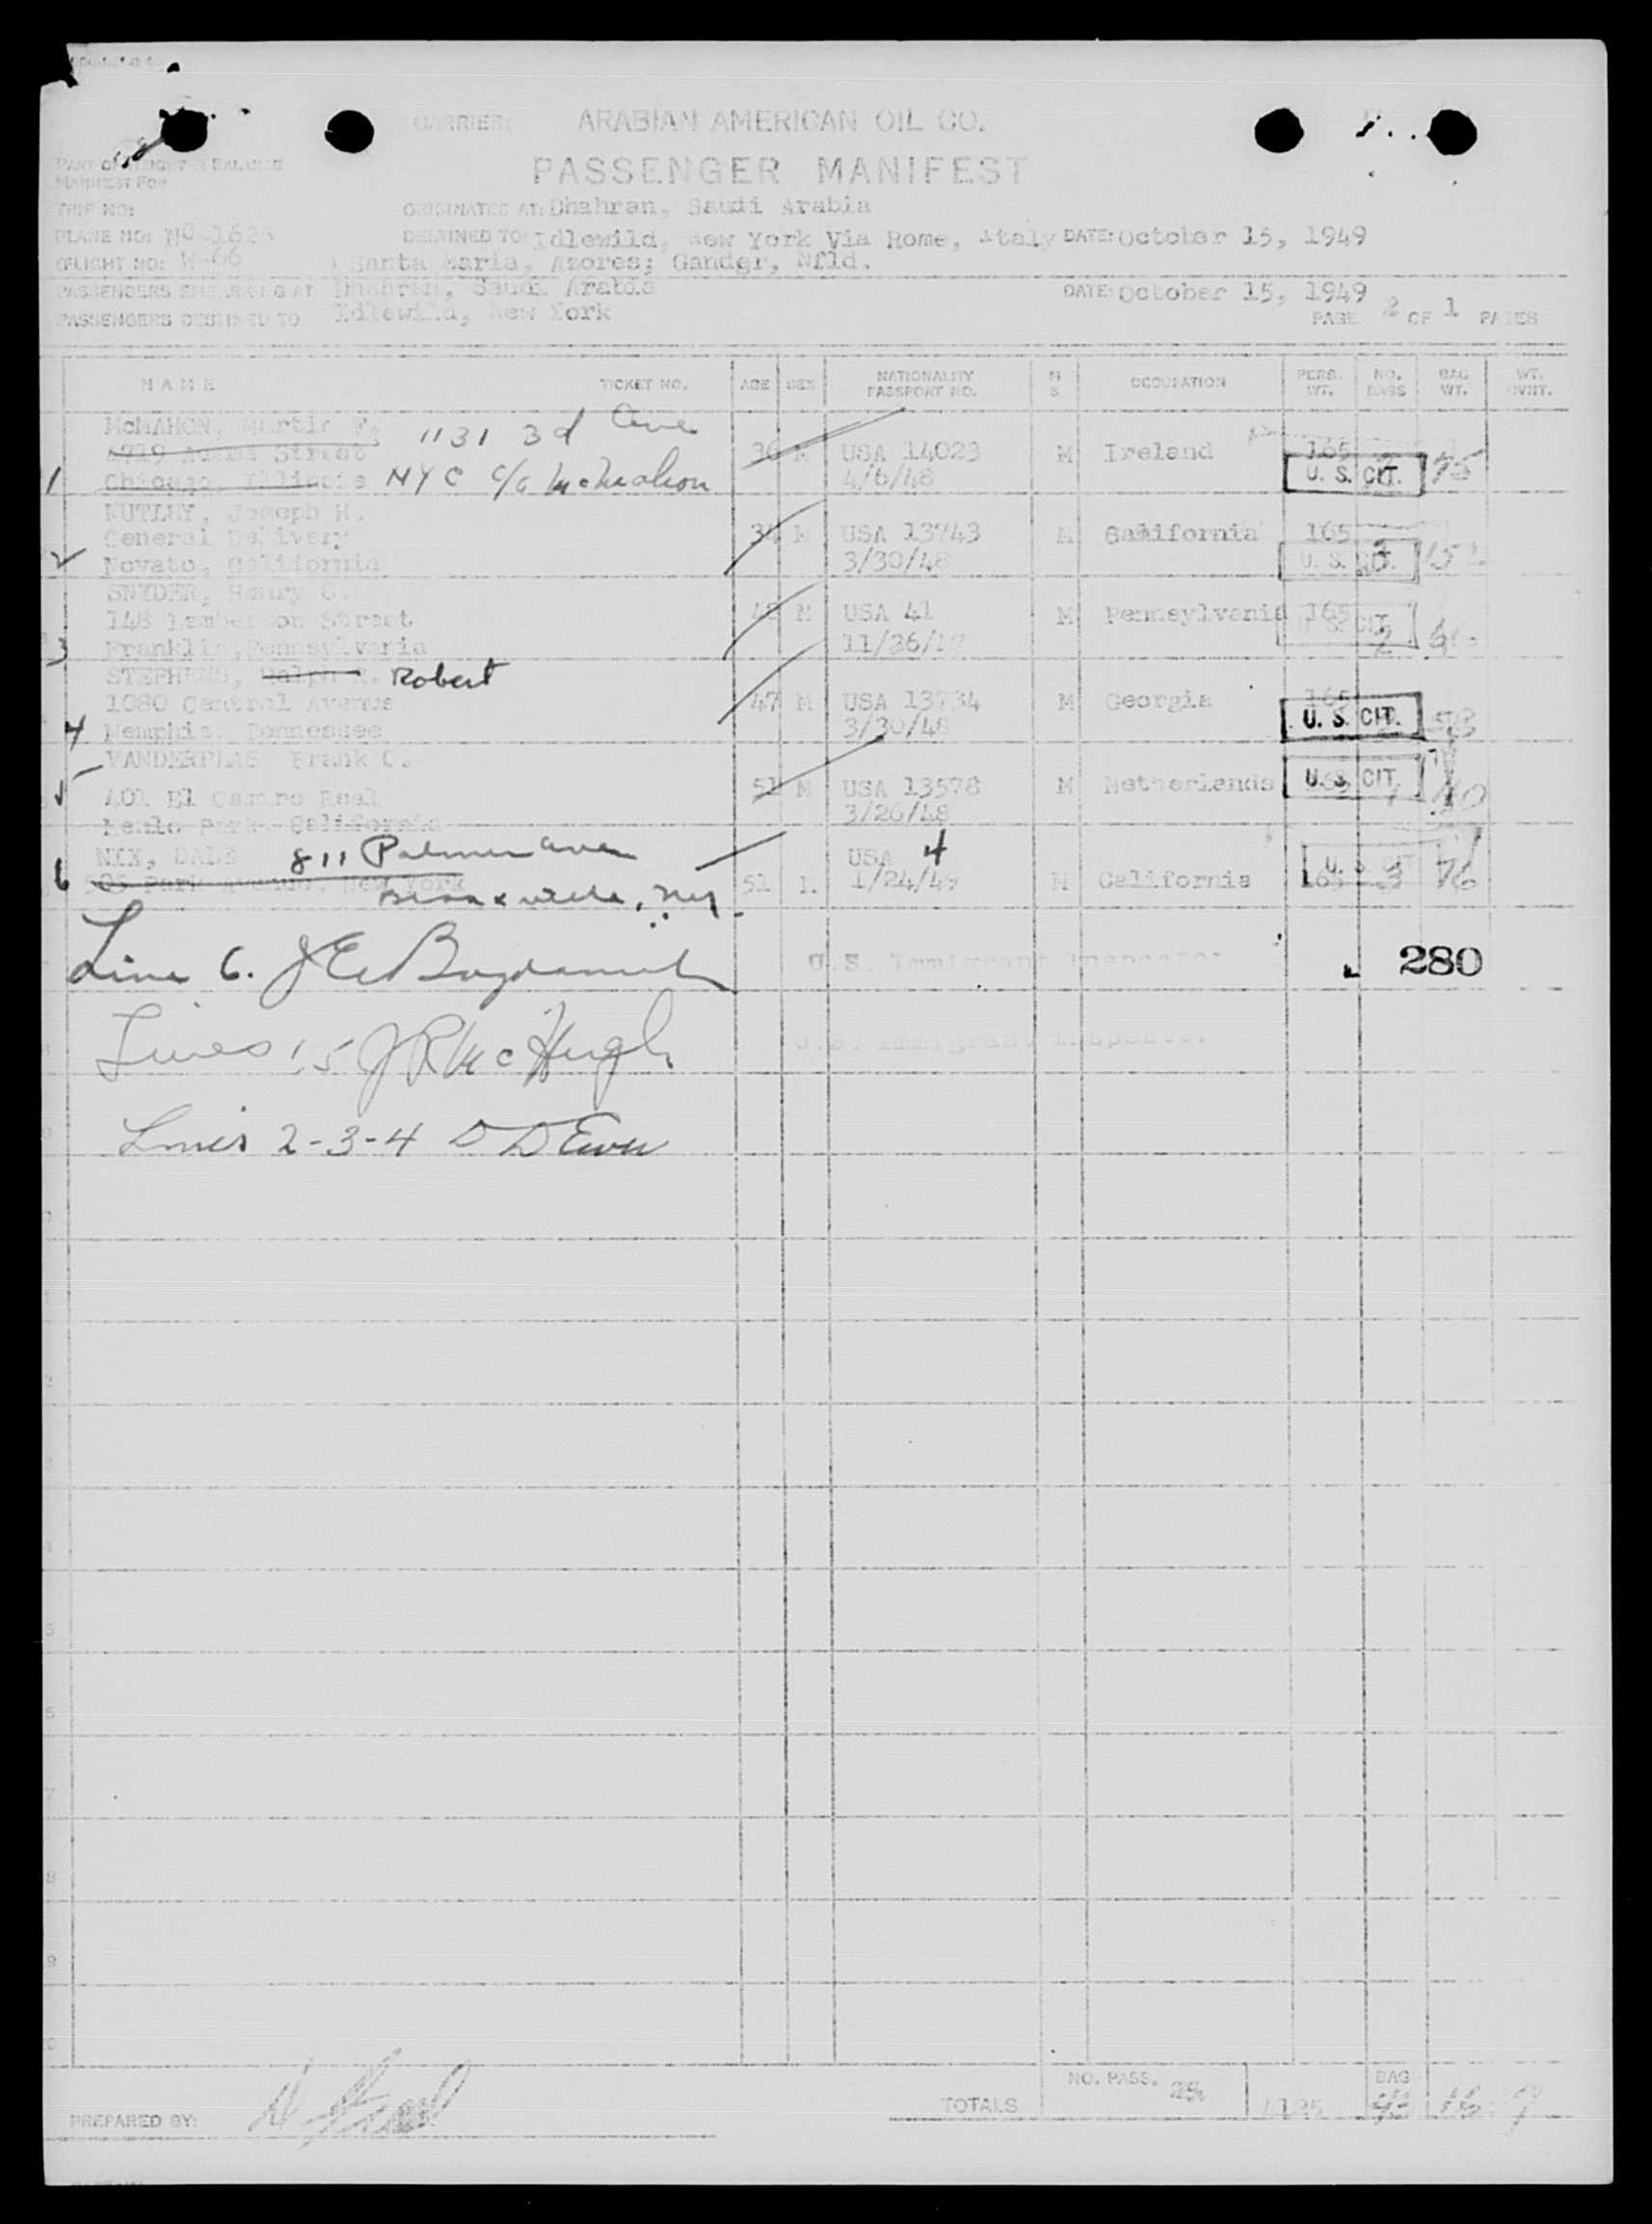 CARRIER: ARABIAN AMERICAN OIL CO.
PASSENGER MANIFEST
PART OF WEIGHT & BALANCE
MANIFEST FOR
TRIP NO:
ORIGINATED AT: Dhahran, Saudi Arabia
PLANE NO: NC-1625
DESTINED TO: Idlewild, New York Via Rome, Italy DATE: October 15, 1949
FLIGHT NO: W-66
Santa Maria, Azores; Gander, Nfld.
PASSENGERS EMBARKING AT Dhahran, Saudi Arabia DATE: October 15, 1949
PASSENGERS DESTINED TO Idlewild, New York PAGE 2 OF 1 PAGES
NAME TICKET NO. AGE SEX NATIONALITY PASSPORT NO. M S OCCUPATION PERS. WT. NO. BAGS BAG WT. WT. OVHT.
McMAHON, Martin F. 1131 3d Ave
4719 Adams Street 36 M USA 14023 M Ireland 165
1 Chicago, Illinois NYC c/o McMahon 4/6/48 U. S. CIT. 75
NUTLEY, Joseph H.
General Delivery 34 M USA 13743 M California 165
2 Novato, California 3/30/48 U. S. CIT. 152
SNYDER, Henry C.
148 Lamberton Street 48 M USA 41 M Pennsylvania 165
3 Franklin, Pennsylvania 11/26/ U. S. CIT. 2
STEPHENS, Ralph R. Robert
1080 Central Avenue 47 M USA 13734 M Georgia 165
4 Memphis, Tennessee 3/30/48 U. S. CIT. 58
VANDERPLAS Frank C.
5 401 El Camino Real 51 M USA 13578 M Netherlands U. S. CIT.
Menlo Park, California 3/26/48
NIX, DALE 811 Palmer Ave USA 4
6 505 Park Avenue, New York 51 1/24/49 M California 165 U. S. CIT 3 76
Bronxville, NY.
Line 6. J E U. S. Immigrant Inspector 280
Lines 1,5 J R McHugh U.S. Immigrant Inspector
Lines 2-3-4 D D
PREPARED BY:
TOTALS NO. PASS. BAG